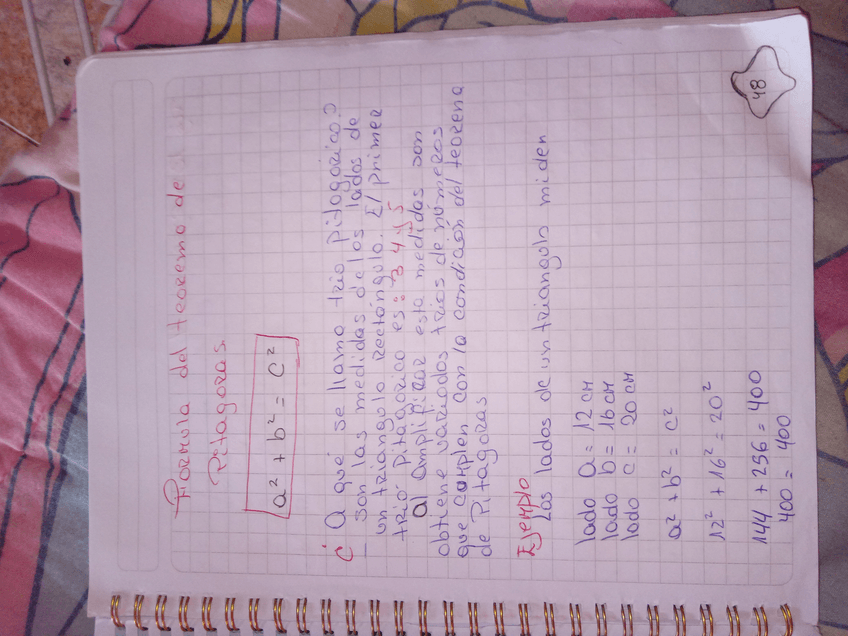 Formula del teorema de
Pitagoras.
a² + b² = c²
¿A qué se llama trio pitagórico?
- son las medidas de los lados de
un triangulo rectángulo. El primer
trio pitagórico es: 3 4 y 5
al amplificar esta medidas son
obtiene variados trios de números
que cumplen con la condición del teorena
de Pitagoras
Ejemplo
Los lados de un triangulo miden
lado a = 12 cm
lado b = 16 cm
lado c = 20 cm
a² + b² = c²
12² + 16² = 20²
144 + 256 = 400
400 = 400
48